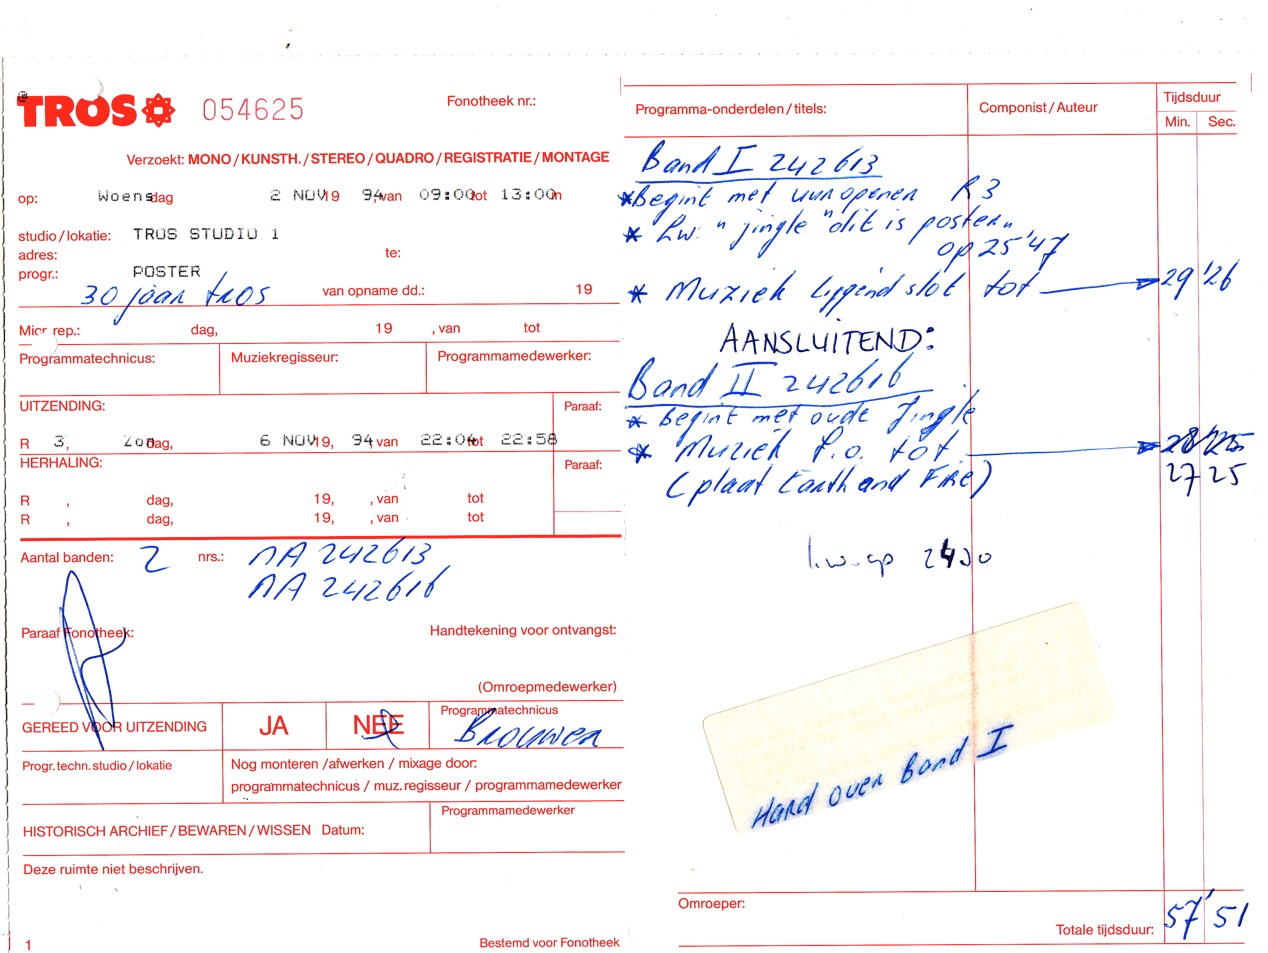 TROS 054625 Fonotheek nr.:
Verzoekt: MONO / KUNSTH. / STEREO / QUADRO / REGISTRATIE / MONTAGE
op: Woensdag 2 NOV 19 94, van 09:00 tot 13:00
studio / lokatie: TROS STUDIO 1
adres: te:
progr.: POSTER
30 jaar tros van opname dd.: 19
rep.: dag, 19 , van tot
Programmatechnicus: Muziekregisseur: Programmamedewerker:
UITZENDING: Paraaf:
R 3, Zondag, 6 NOV 19, 94 van 22:04 tot 22:58
HERHALING: Paraaf:
R , dag, 19, , van tot
R , dag, 19, , van tot
Aantal banden: 2 nrs.: MA 242613
MA 242616
Paraaf Fonotheek: Handtekening voor ontvangst:
(Omroepmedewerker)
GEREED VOOR UITZENDING JA NEE Programmatechnicus
Brouwer
Progr. techn. studio / lokatie Nog monteren / afwerken / mixage door:
programmatechnicus / muz. regisseur / programmamedewerker
HISTORISCH ARCHIEF / BEWAREN / WISSEN Datum: Programmamedewerker
Deze ruimte niet beschrijven.
1 Bestemd voor Fonotheek
Programma-onderdelen / titels: Componist / Auteur Tijdsduur
Min. Sec.
Band I 242613
* Begint met uuropener R3
* L.w. "jingle "dit is poster"
op 25'47
* Muziek liggend slot tot 29'26
AANSLUITEND:
Band II 242616
* Begint met oude Jingle
* Muziek f.o. tot 28'25
(plaat Earth and Fire) 27 25
l.w. op 24
Hard over Band I
Omroeper:
Totale tijdsduur: 57'51